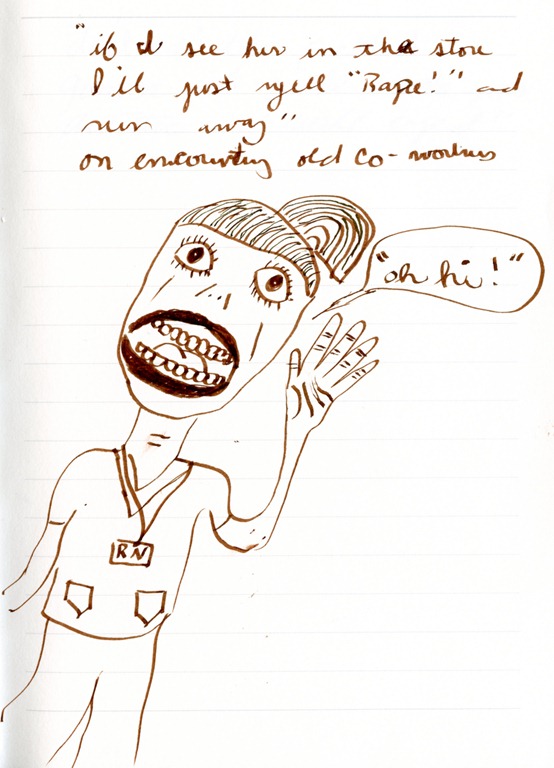 "if I'd see her in the store
I'll just yell "Rape!" and
run away"
on encountering old co-workers
"oh hi!"
RN